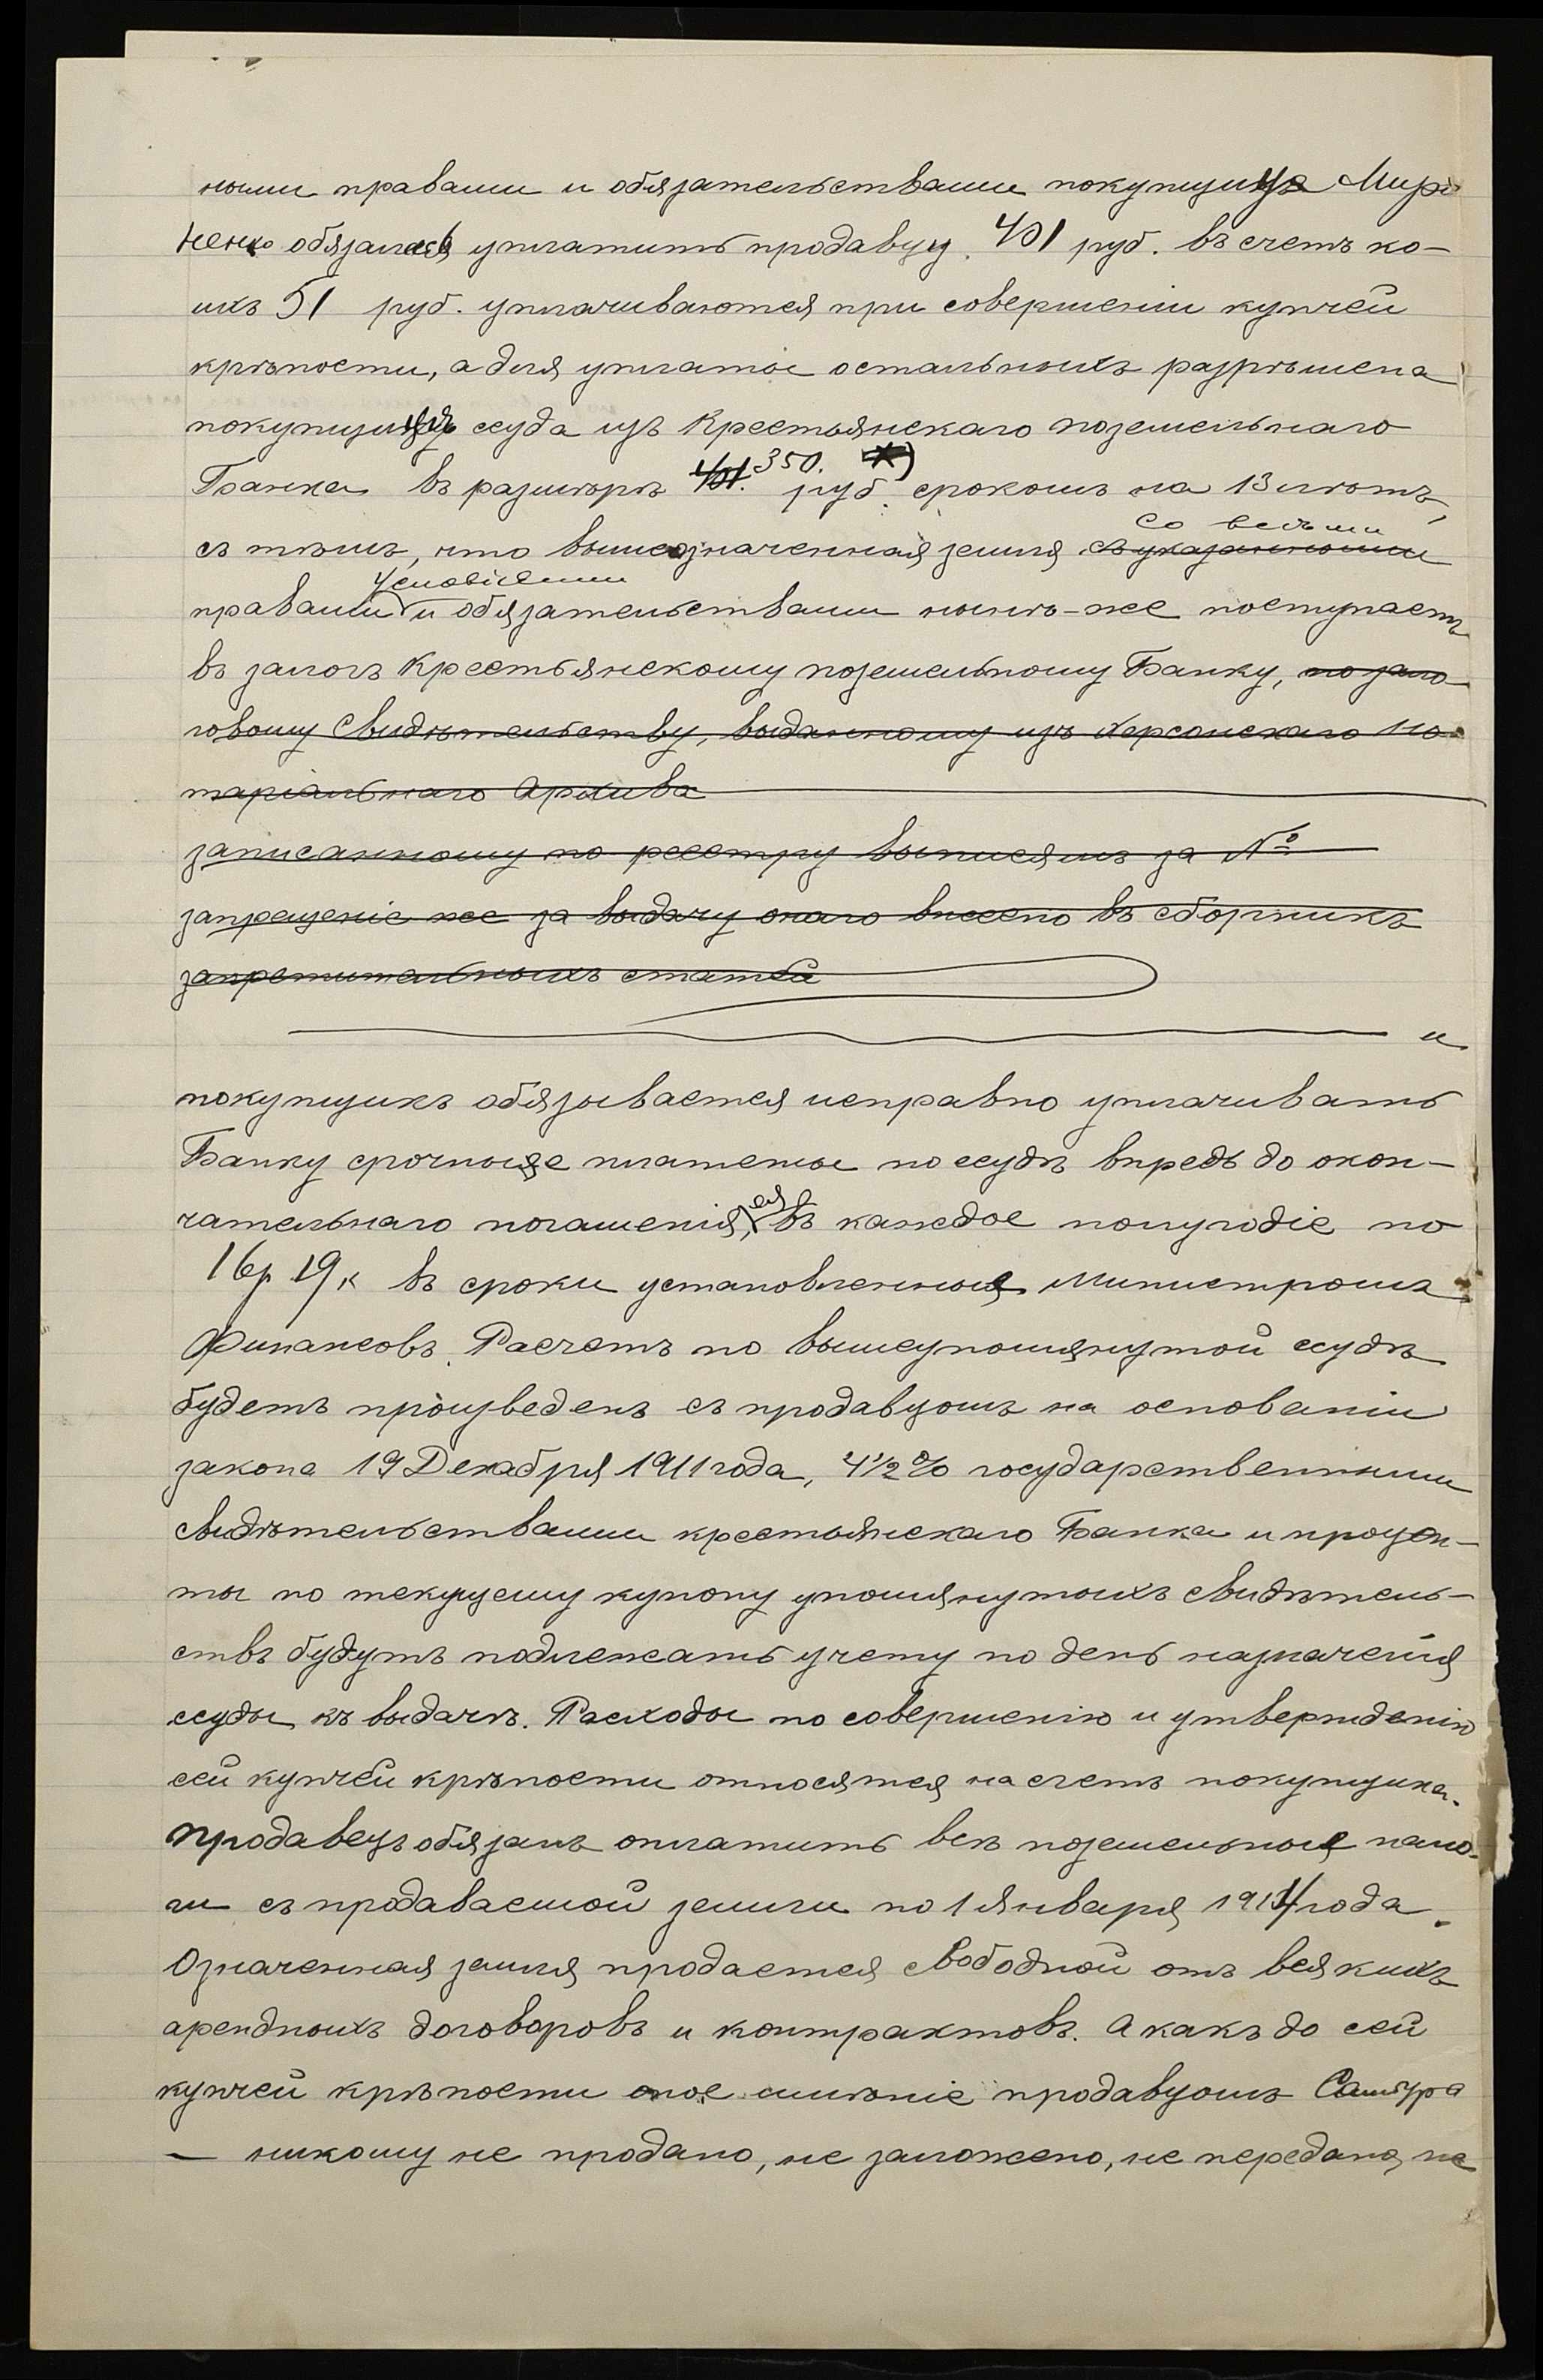 ными правами и обязательствами покупщица Миро
ненко обязалась уплатить продавцу 401 руб. въ счетъ ко-
ихъ 51 руб. уплачиваются при совершеніи купчей
крѣпости, а для уплаты остальныхъ разрѣшена
покупщицѣ ссуда изъ Крестьянскаго поземельнаго
350. *)
Банка въ размѣрѣ 401. руб. срокомъ на 13 лѣтъ,
со всѣми
съ тѣмъ, что вышеозначенная земля съ указанными
условіями
правами и обязательствами нынѣ-же поступаетъ
въ залогъ Крестьянскому поземельному Банку, по зало-
говому свидѣтельству, выданному изъ Херсонскаго Но-
таріальнаго Архива
записанному по реестру выписямъ за №
запрещеніе же за выдачу онаго внесено въ сборникъ
запретительныхъ статей
и
покупщикъ обязывается исправно уплачивать
Банку срочные платежы по ссудѣ впредь до окон-
ея
чательнаго погашенія, въ каждое полугодіе по
16 р 19 к въ сроки установленные Министромъ
Финансовъ. Расчетъ по вышеупомянутой ссудѣ
будетъ произведенъ съ продавцомъ на основаніи
закона 19 Декабря 1911 года, 4½% государственными
свидѣтельствами крестьянскаго Банка и процен-
ты по текущему купону упомянутыхъ свидѣтель-
ствъ будутъ подлежать учету по день назначенія
ссуды къ выдачѣ. Расходы по совершенію и утвержденію
сей купчей крѣпости относятся на счетъ покупщика.
Продавецъ обязанъ оплатить всѣ поземельные нало-
ги съ продаваемой земли по 1 Января 1914 года.
Означенная земля продается свободной отъ всякихъ
арендныхъ договоровъ и контрактовъ. А какъ до сей
купчей крѣпости оное имѣніе продавцомъ
— никому не продано, не заложено, не передано, не